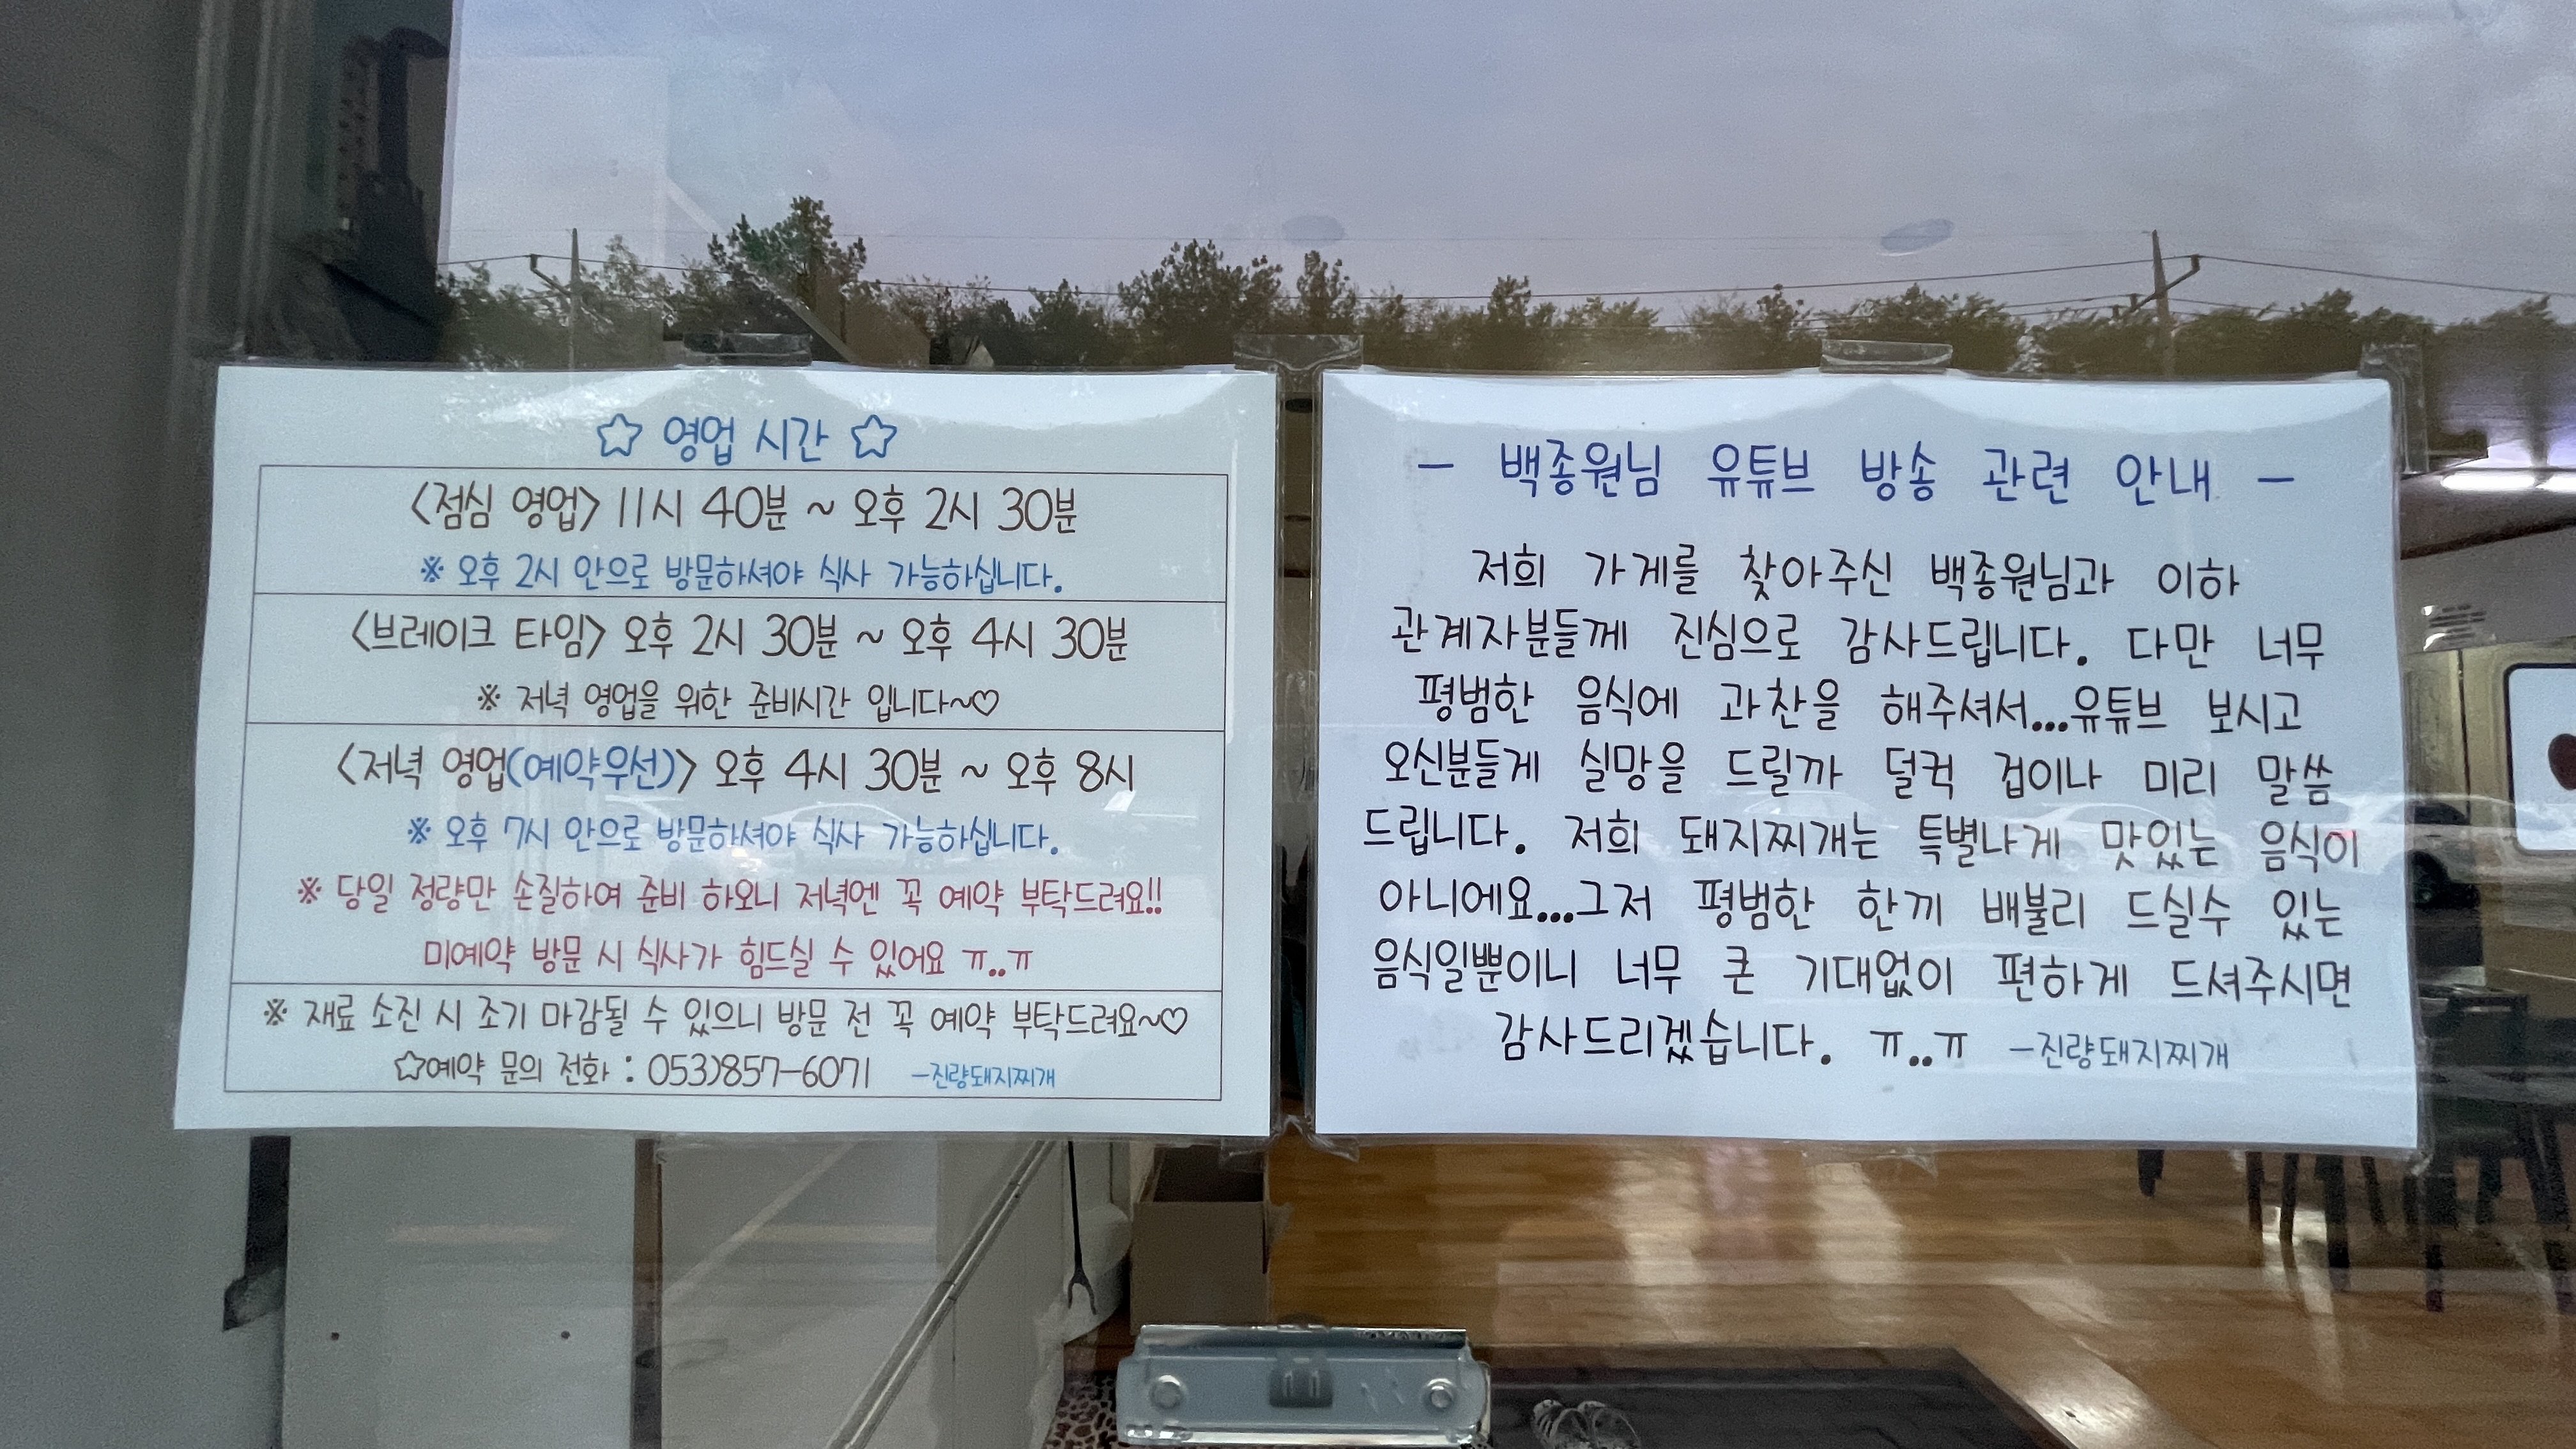 ☆ 영업 시간 ☆
<점심 영업> 11시 40분 ~ 오후 2시 30분
※ 오후 2시 안으로 방문하셔야 식사 가능하십니다.
<브레이크 타임> 오후 2시 30분 ~ 오후 4시 30분
※ 저녁 영업을 위한 준비시간 입니다~♡
<저녁 영업(예약우선)> 오후 4시 30분 ~ 오후 8시
※ 오후 7시 안으로 방문하셔야 식사 가능하십니다.
※ 당일 정량만 손질하여 준비 하오니 저녁엔 꼭 예약 부탁드려요!!
미예약 방문 시 식사가 힘드실 수 있어요 ㅠ..ㅠ
※ 재료 소진 시 조기 마감될 수 있으니 방문 전 꼭 예약 부탁드려요~♡
☆예약 문의 전화 : 053)857-6071 -진량돼지찌개
- 백종원님 유튜브 방송 관련 안내 -
저희 가게를 찾아주신 백종원님과 이하
관계자분들께 진심으로 감사드립니다. 다만 너무
평범한 음식에 과찬을 해주셔서...유튜브 보시고
오신분들게 실망을 드릴까 덜컥 겁이나 미리 말씀
드립니다. 저희 돼지찌개는 특별나게 맛있는 음식이
아니에요...그저 평범한 한끼 배불리 드실수 있는
음식일뿐이니 너무 큰 기대없이 편하게 드셔주시면
감사드리겠습니다. ㅠ..ㅠ -진량돼지찌개